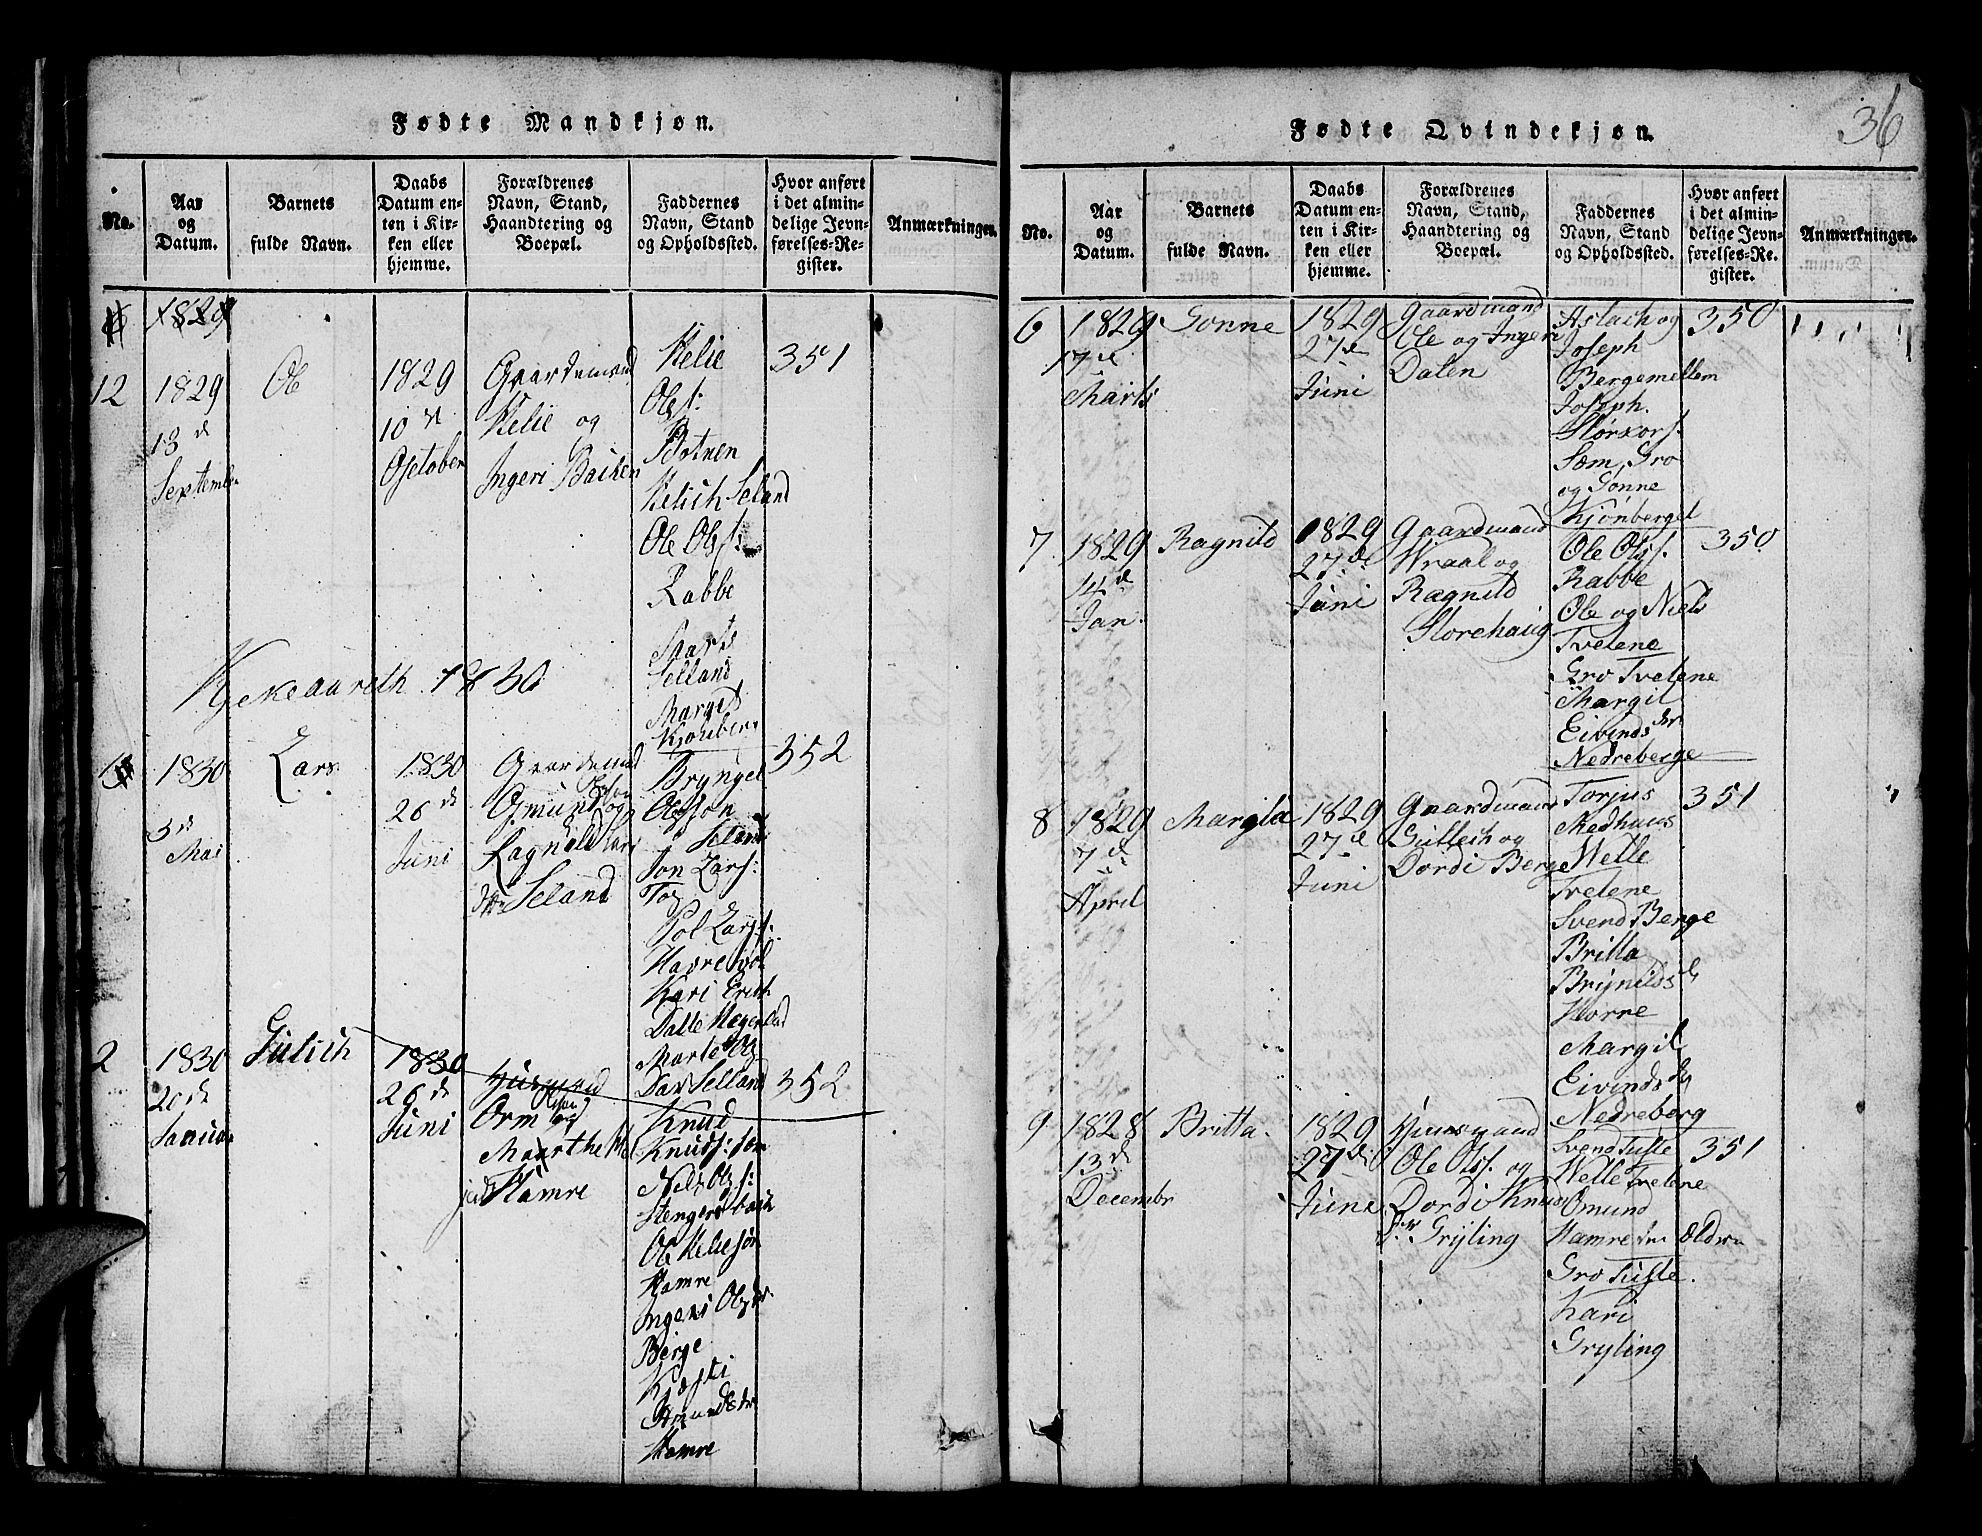 36
Fødte Mandkjøn.
No.
Aar og Datum.
Barnets fulde Navn.
Daabs Datum enten i Kirken eller hjemme.
Forældrenes Navn, Stand, Haandtering og Boepæl.
Faddernes Navn, Stand og Opholdssted.
Hvor anført i det almindelige Jevnførelses-Register.
Anmærkninger.
1829
12
1829
13 d
Septembr
Ole
1829
10 d
October
Gaardemand
Kelie og
Ingeri Backen
Kelie
Ols:
Botnen
Kelich Seland
Ole Ols:
Rabbe
Marts
Selland
Margit
Kjonberg
351
Kjekeaareth 1830
1
1830
3 d
Mai
Lars
1830
26 d
Juni
Gaardemand
Omund og
Ragnild Lars
Seland
Bryngel
Olsson
Seland
Jon Lars:
Tog
Pol Lars:
Havrevol
Kari Erich
Datte Hegerland
Marte Ols
Dat Selland
352
2
1830
20 d
Januar
Gulich
1830
26 d
Juni
Huusmand
Orm og
Maarthe
Hamre
Knud
Knuds: søn
Nels Ols:
Stengersbach
Ole Keliesøn
Hamre
Ingeri Ols dr
Berge
Kjøsti
Amunds dr
Hamre
352
Fødte Qvindekjøn.
No.
Aar og Datum.
Barnets fulde Navn.
Daabs Datum enten i Kirken eller hjemme.
Forældrenes Navn, Stand, Haandtering og Boepæl.
Faddernes Navn, Stand og Opholdssted.
Hvor anført i det almindelige Jevnførelses-Register.
Anmærkninger.
6
1829
17 d
Marts
Gonne
1829
27 d
Juni
Gaardmand
Ole og Ingeri
Dalen
Aslach og
Joseph
Bergemellem
Joseph
Størxors.
Sæm, Gro
og Gonne
Kjønberget
350
7
1829
14 d
Jan.
Ragnild
1829
27 d
Juni
Gaardmand
Wraal og
Ragnild
Storehaug
Ole Ols.
Rabbe
Ole og Niels
Tvelene
Gro Tvelene
Margit
Eivinds dr
Nedreberge
350
8
1829
7 d
April
Margita
1829
27 d
Juni
Gaardmand
Gullech og
Dordi Berge
Torjus
Medhuus
Welle
Tvelene
Svend Berge
Britta
Brynilds d
Horre
Margit
Eivinds d
Nedreberg
351
9
1828
13 d
Decembr
Britta.
1829
27 d
June
Huusmand
Ole Ols. og
Dordi Knuds
dr. Gryling
Svend Tufte
Welle Tvelene
Omund
Hamre den Ældre
Gro Tufte.
Kari
Gryling
351